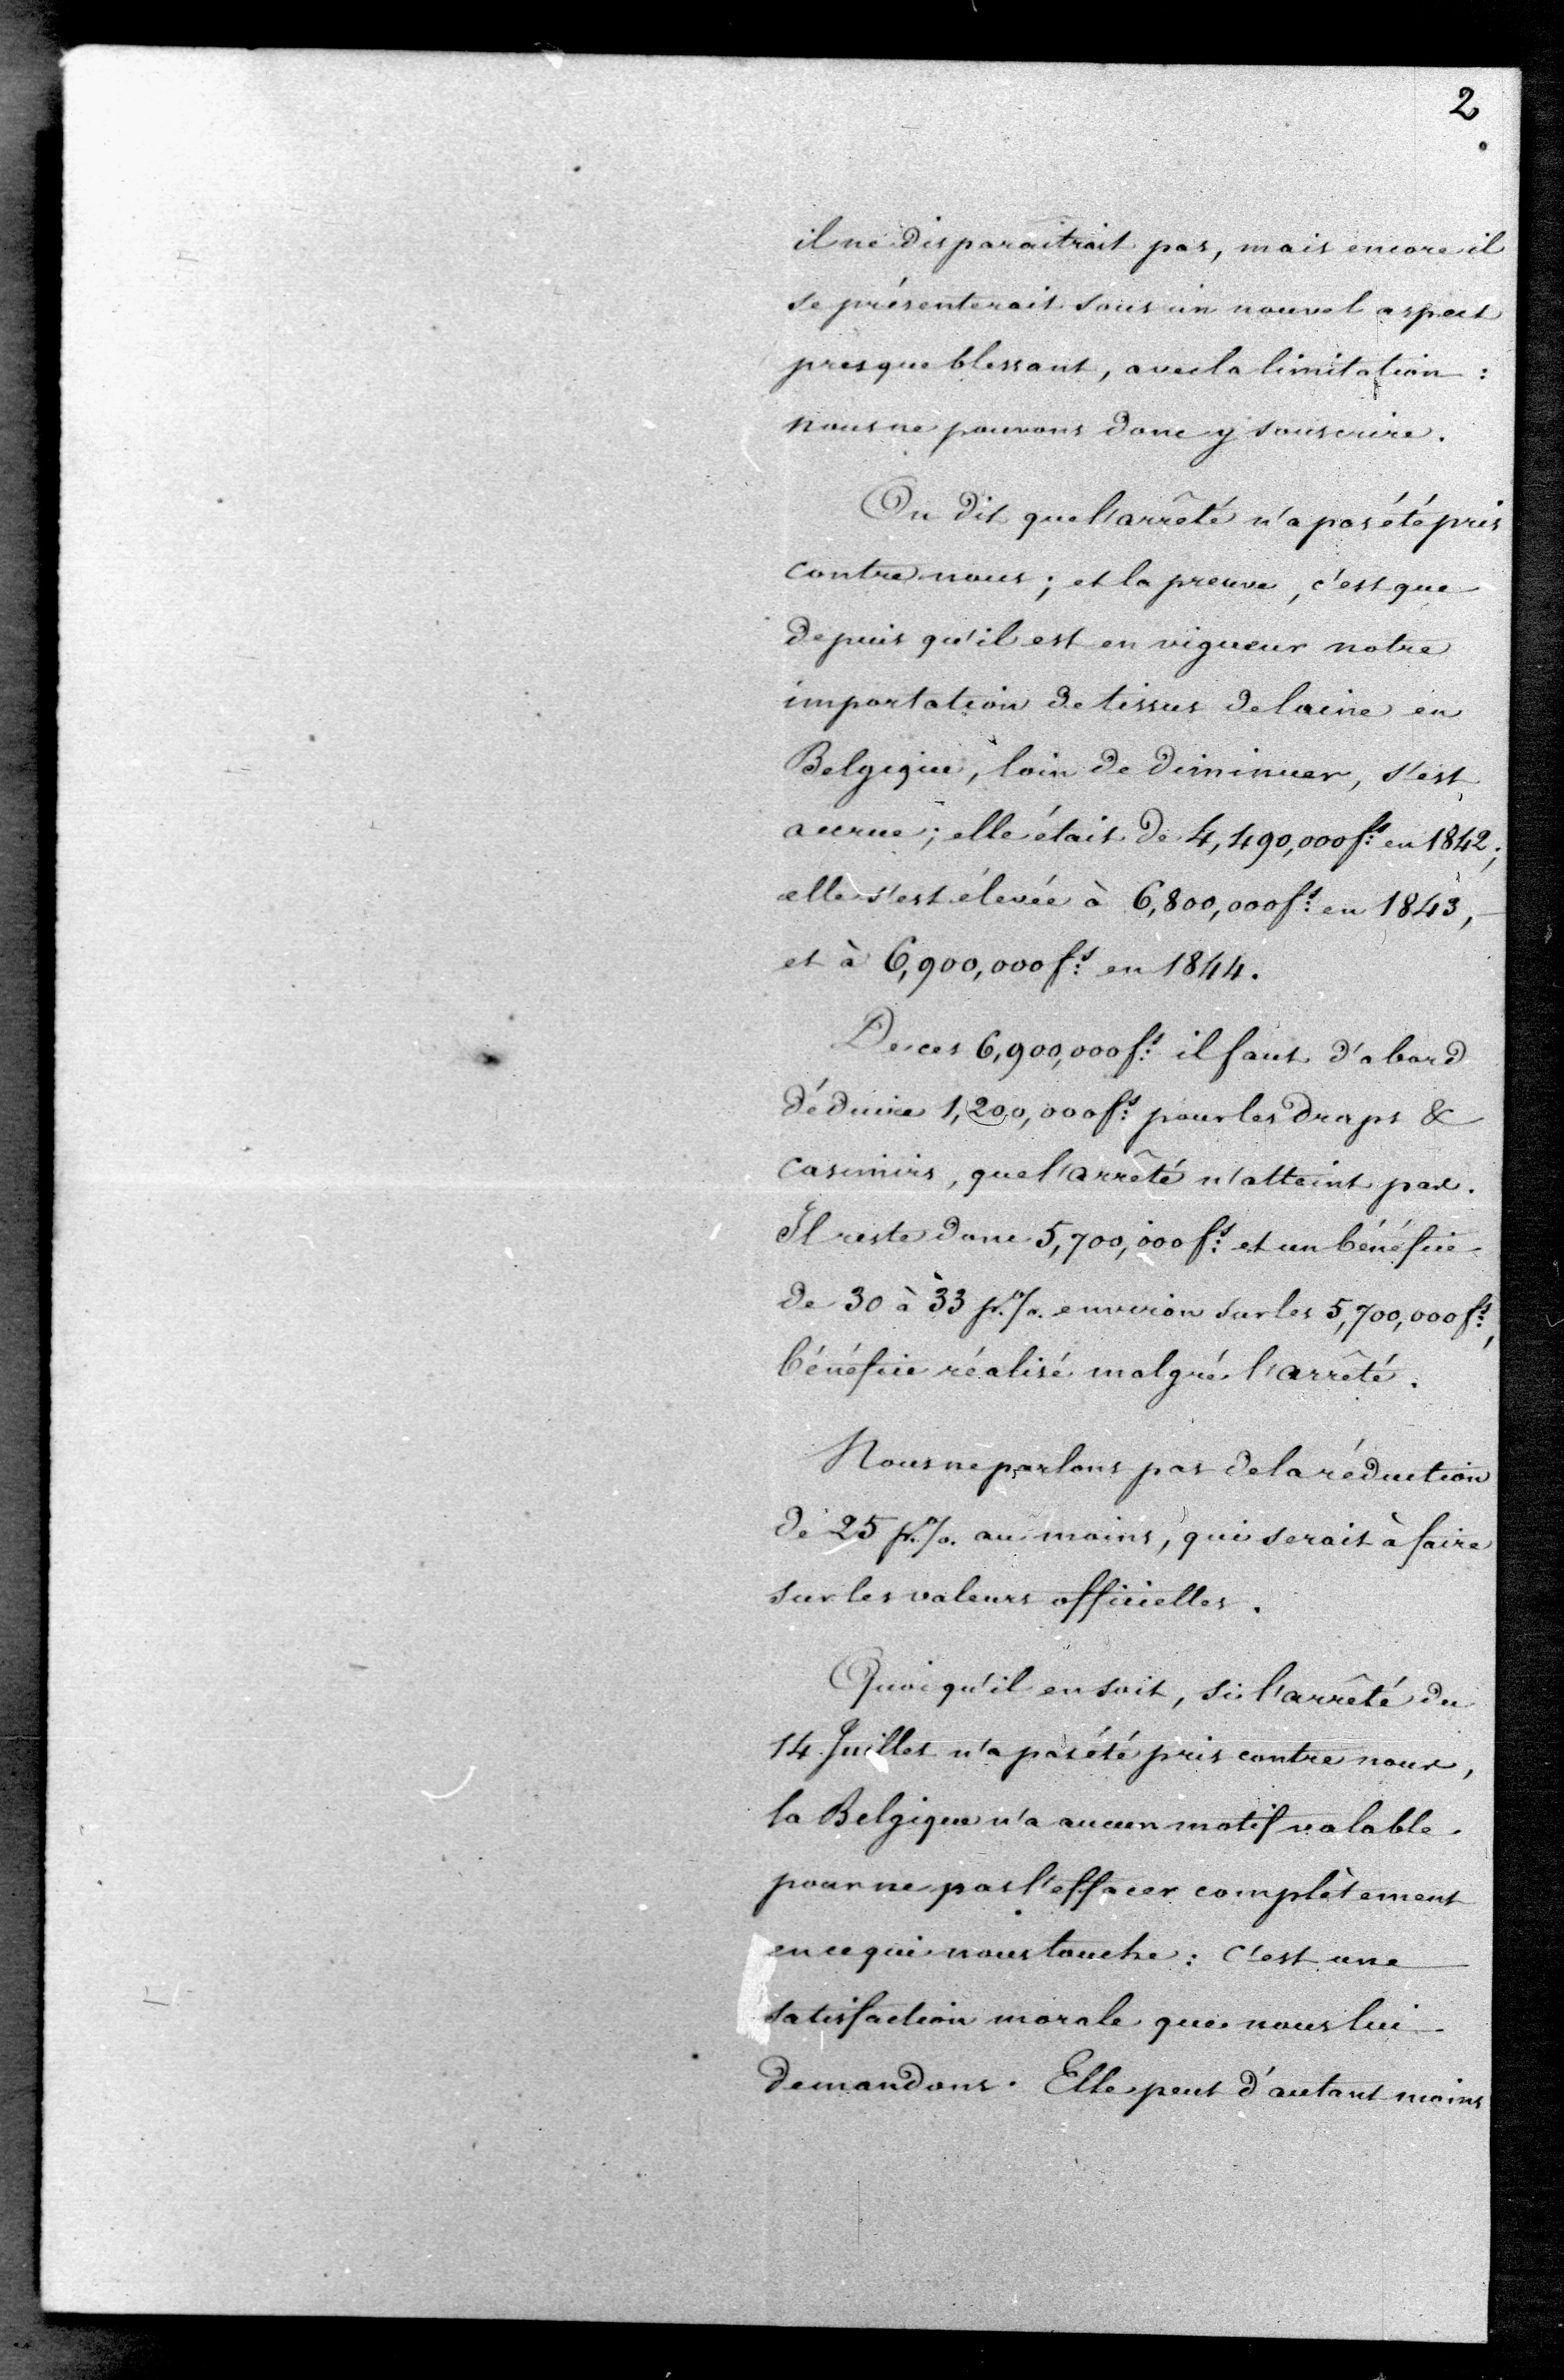 2
il ne disparaitrait pas, mais encore il
se présenterait sous un nouvel aspect
presque blessant, avec la limitation :
nous ne pouvons donc y souscrire.
On dit que l'arrêté n'a pas été pris
contre nous ; et la preuve, c'est que
depuis qu'il est en vigueur notre
importation de tissus de laine en
Belgique, loin de diminuer, s'est
accrue ; elle était de 4,490,000 fs: en 1842 ;
elle s'est élevée à 6,800,000 fs: en 1843,
et à 6,900,000 fs: en 1844.
De ces 6,900,000 fs: il faut d'abord
déduire 1,200,000 fs: pour les draps &
casimirs, que l'arrêté n'atteint pas.
Il reste donc 5,700,000 fs: et un bénéfice
de 30 à 33 p.% environ sur les 5,700,000 fs:,
bénéfice réalisé malgré l'arrêté.
Nous ne parlons pas de la réduction
de 25 p.% au moins, qui serait à faire
sur les valeurs officielles.
Quoiqu'il en soit, si l'arrêté du
14 Juillet n'a pas été pris contre nous,
la Belgique n'a aucun motif valable
pour ne pas l'effacer complètement
en ce qui nous touche : c'est une
satisfaction morale que nous lui
demandons. Elle peut d'autant moins